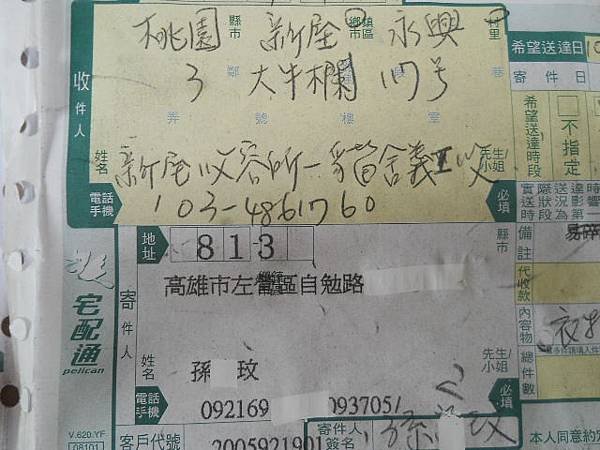 桃園 縣市 新屋 鄉鎮市區 永興 村里
3 鄰 大牛欄 117号
弄 號 樓 室
收件人
姓名 新屋收容所—貓舍義工收 先生/小姐
電話/手機 03-4861760 必填
地址 813 縣市
高雄市左營區自勉路
寄件人
姓名 孫 玫 先生/小姐
電話/手機 092169 093705/ 必填
客戶代號 2005921901
寄件人簽名 孫 玫
宅配通
pelican
V.620.YF
08101
希望送達日
寄件日
希望送達時段
不指定
備註 易碎
代收款
內容物
總件數
本人同意約定